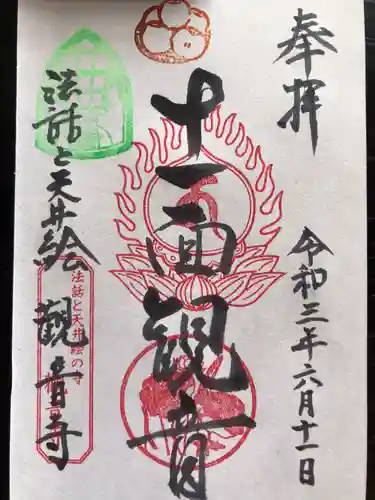 奉拝
令和三年六月十一日
十一面観音
法話と天井絵 観音寺
法話と天井絵の寺